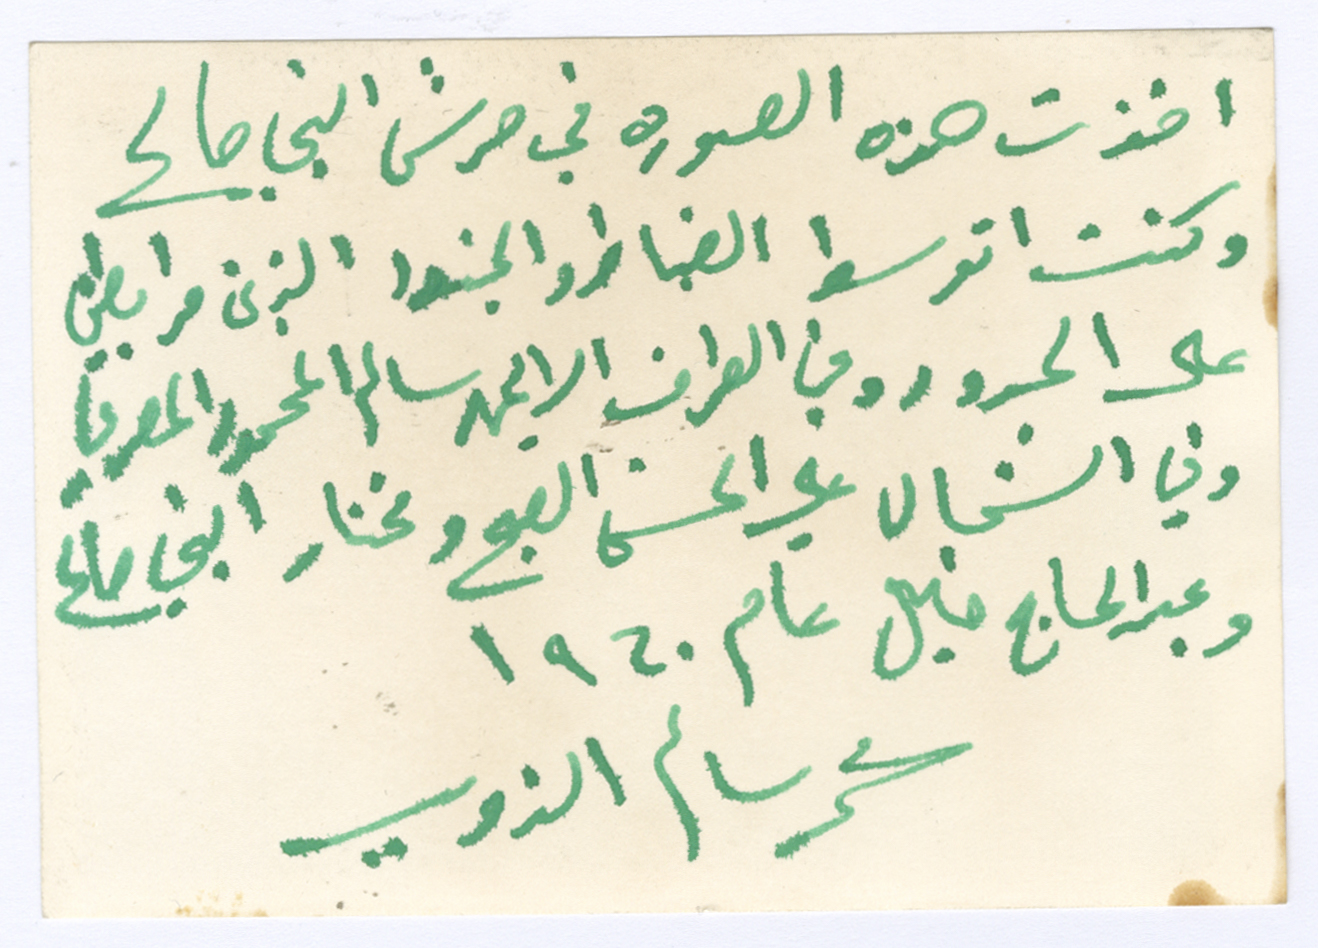 اخذت هذه الصوره في حرش النبي صالح
وكنت اتوسط الضباط والجنود الذين مرابطين
على الحدود وفي الطرف الايمن سالم المحمود
وفي الشمال علي الحسن ومختار النبي صالح
وعبد الحاج خليل عام ١٩٦٠
سالم الذويب